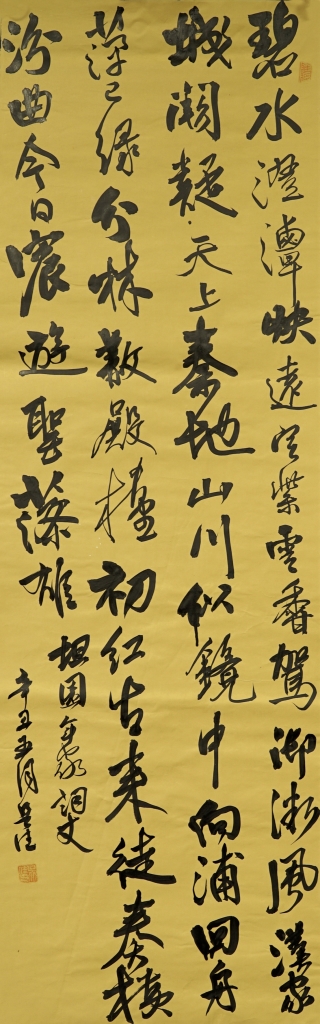 碧水澄潭映遠空紫雲香駕御微風漢家
城闕疑天上秦地山川似鏡中向浦回舟
萍已綠分林蔽殿槿初紅古來徒奏橫
汾曲今日宸遊聖藻雄
坦園 詞丈
辛丑五月